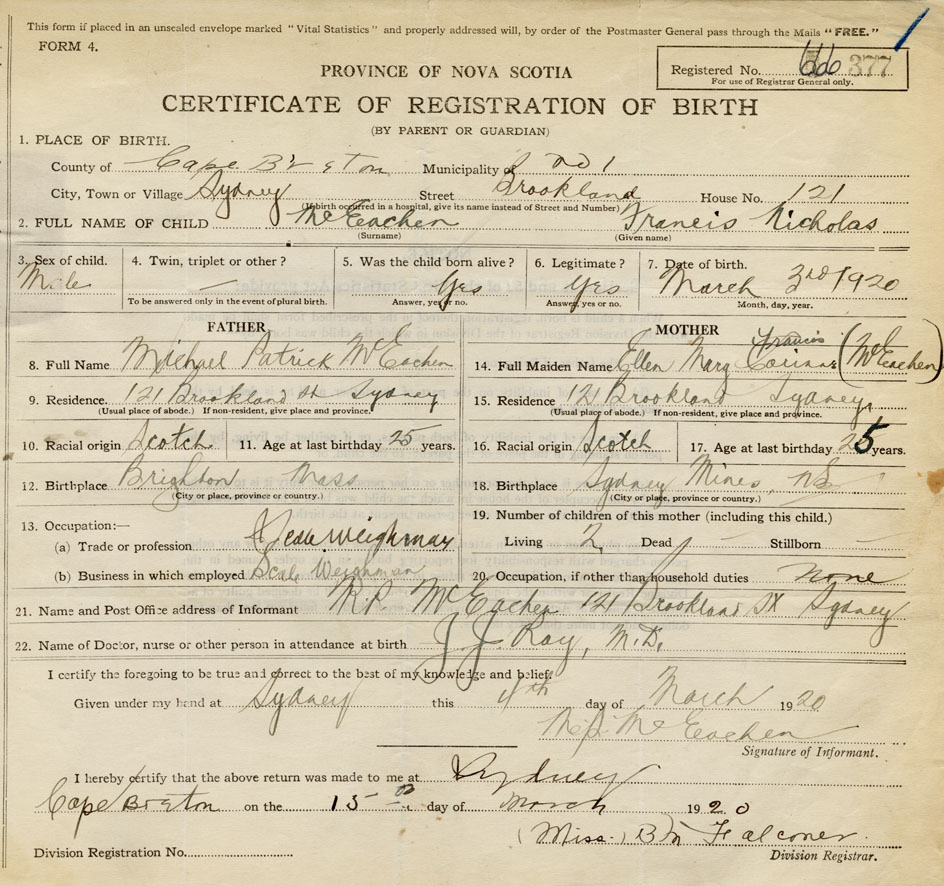 This form if placed in an unsealed envelope marked "Vital Statistics" and properly addressed will, by order of the Postmaster General pass through the Mails "FREE."
FORM 4.
Registered No. 377
For use of Registrar General only.
PROVINCE OF NOVA SCOTIA
CERTIFICATE OF REGISTRATION OF BIRTH
(BY PARENT OR GUARDIAN)
1. PLACE OF BIRTH.
County of Cape Breton Municipality of
City, Town or Village Sydney Street Brookland House No. 121
(If birth occurred in a hospital, give its name instead of Street and Number)
2. FULL NAME OF CHILD McEachen Francis Nicholas
(Surname) (Given name)
3. Sex of child. Male 4. Twin, triplet or other? — 5. Was the child born alive? Yes 6. Legitimate? Yes 7. Date of birth. March 3rd 1920
To be answered only in the event of plural birth. Answer, yes or no. Answer, yes or no. Month, day, year.
FATHER
8. Full Name Michael Patrick McEachen
9. Residence. 121 Brookland St Sydney
(Usual place of abode.) If non-resident, give place and province.
10. Racial origin Scotch 11. Age at last birthday 25 years.
12. Birthplace Brighton Mass
(City or place, province or country.)
13. Occupation:—
(a) Trade or profession Scale Weighman
(b) Business in which employed Scale Weighman
MOTHER
Francis
14. Full Maiden Name Ellen Mary (McEachen)
15. Residence 121 Brookland Sydney
(Usual place of abode.) If non-resident, give place and province.
16. Racial origin Scotch 17. Age at last birthday 25 years.
18. Birthplace Sydney Mines, NS
(City or place, province or country.)
19. Number of children of this mother (including this child.)
Living 2 Dead Stillborn
20. Occupation, if other than household duties none
21. Name and Post Office address of Informant McEachen 121 Brookland St Sydney
22. Name of Doctor, nurse or other person in attendance at birth J. J. Roy, M.D.
I certify the foregoing to be true and correct to the best of my knowledge and belief.
Given under my hand at Sydney this 4th day of March 1920
M.P. McEachen
Signature of Informant.
I hereby certify that the above return was made to me at Sydney
Cape Breton on the 15 day of March 1920
(Miss.) B M Falconer
Division Registration No. Division Registrar.